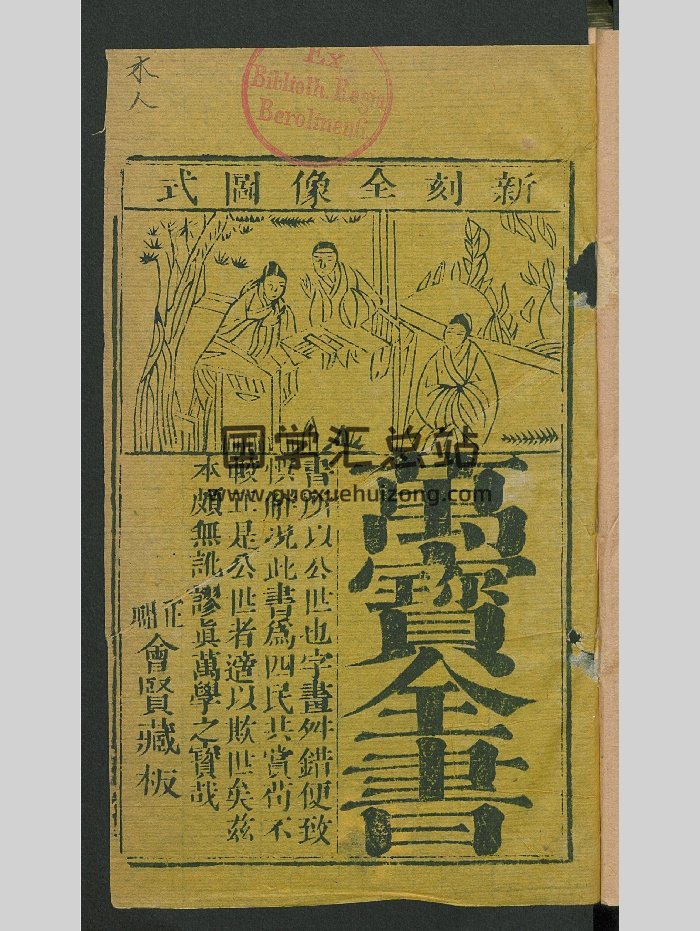 木人
Ex
Biblioth. Regia
Berolinensi.
新刻全像圖式
萬寶全書
書所以公世也字畫舛錯便致
悞解况此書爲四民共賞苟不
較正是公世者適以欺世矣茲
本頗無訛謬眞萬學之寳哉
正
會賢藏板
国学汇总站
www.guoxuehuizong.com